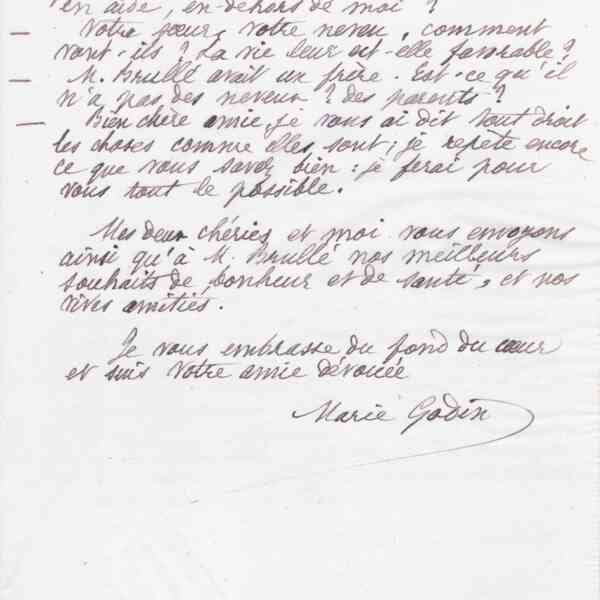 en aide, en-dehors de moi ?
Votre sœur, votre neveu, comment
vont-ils ? La vie leur est-elle favorable ?
— M. Brullé avait un frère. Est-ce qu'il
n'a pas des neveux ? des parents ?
— Bien chère amie, je vous ai dit tout droit
les choses comme elles sont ; je répète encore
ce que vous savez bien : je ferai pour
vous tout le possible.
Mes deux chéries et moi vous envoyons
ainsi qu'à M. Brullé nos meilleurs
souhaits de bonheur et de santé, et nos
vives amitiés.
Je vous embrasse du fond du cœur
et suis votre amie dévouée
Marie Godin